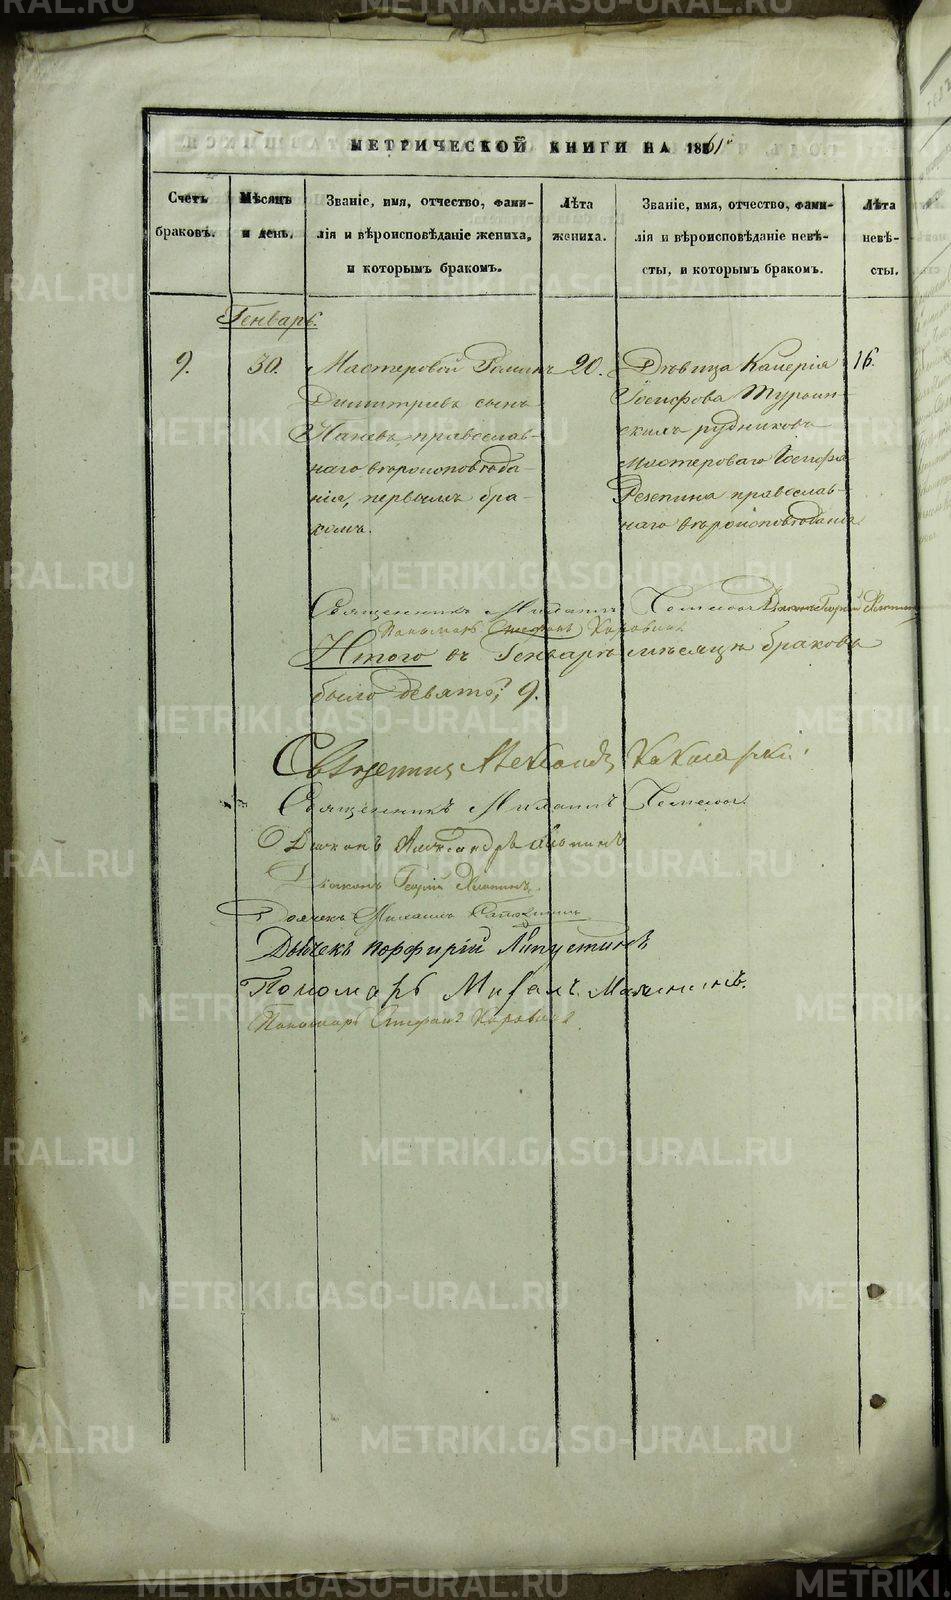 МЕТРИЧЕСКОЙ КНИГИ НА 1861й
Счетъ браковъ.
Мѣсяцъ и день.
Званіе, имя, отчество, фами-
лія и вѣроисповѣданіе жениха,
и которымъ бракомъ.
Лѣта жениха.
Званіе, имя, отчество, фами-
лія и вѣроисповѣданіе невѣ-
сты, и которымъ бракомъ.
Лѣта невѣ-
сты.
Генварь.
9.
30.
Мастеровой
Димитріевъ сынъ
Паневъ, православ-
наго вѣроисповѣда-
нія, первымъ бра-
комъ.
20.
Дѣвица Калерія
Іосифова Турьин-
скихъ рудниковъ
мастероваго Іосифа
Резепина православ-
наго вѣроисповѣданія
16.
Священникъ Михаилъ Діаконъ Георгій
Пономарь Стефанъ Коровинъ
Итого въ Генварѣ мѣсяцѣ браковъ
было девять, 9.
Священникъ Александръ
Священникъ Михаилъ
Діаконъ Александръ
Діаконъ Георгій
Дьячекъ Михаилъ
Дьячекъ Порфирій Липустинъ
Пономарь Михаилъ Малининъ.
Пономарь Стефанъ Коровинъ
METRIKI.GASO-URAL.RU